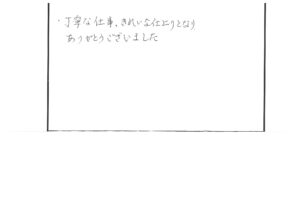 ・丁寧な仕事、きれいな仕上りとなり
ありがとうございました